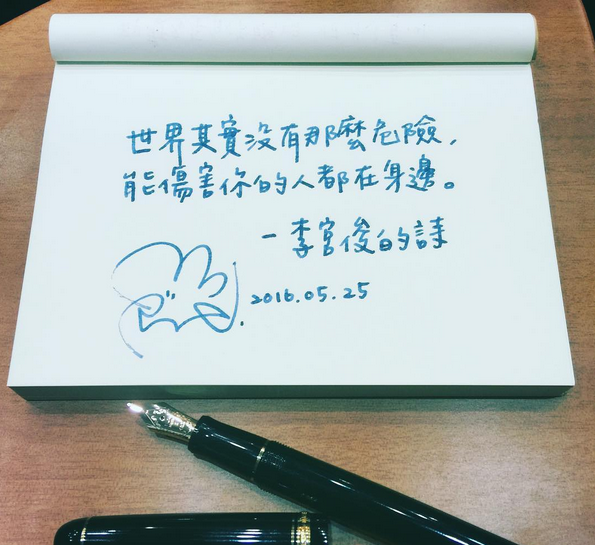 世界其實沒有那麼危險，
能傷害你的人都在身邊。
－李宮俊的詩
2016.05.25